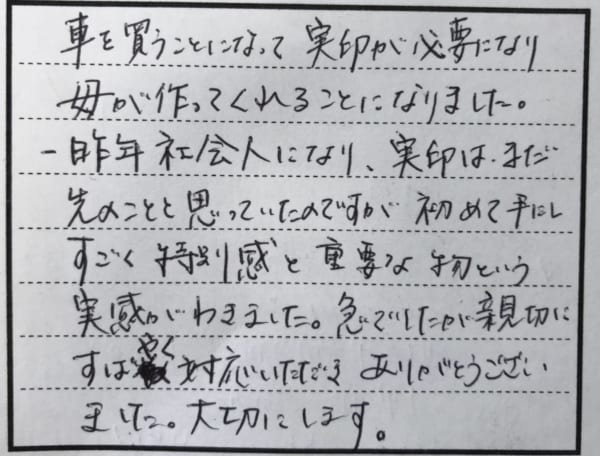 車を買うことになって 実印が必要になり
母が作ってくれることになりました。
一昨年社会人になり、実印は、まだ
先のことと思っていたのですが 初めて手にし
すごく特別感と重要な物という
実感がわきました。急でしたが親切に
すばやく対応いただき ありがとうござい
ました。大切にします。